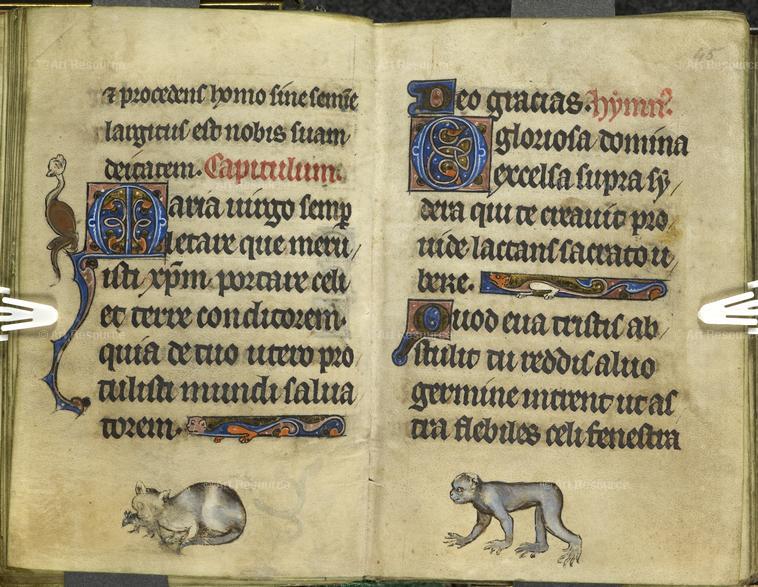 ⁊ procedens homo sine semīe
largitus est nobis suam
deitatem. Capitulum.
Maria uirgo semꝑ
letare que meru/
isti xp̄m portare celi
et terre conditorem.
quia de tuo utero pro
tulisti mundi salua
torem.
Deo gracias. hymn᷒
O gloriosa domina
excelsa supra sy/
dera qui te creauit pro/
uide lactans sacrato u/
bere.
Quod eua tristis ab/
stulit tu reddis aluo
germine intrent ut as/
tra flebiles celi fenestra
65
Art Resource
Art Resource
Art Resource
Art Resource
Art Resource
Art Resource